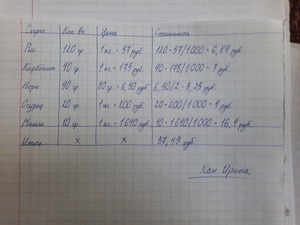 Кол-во Цена Стоимость
Рис 120 гр 1 кг = 57 руб. 120 · 57/1000 = 6,84 руб
Карбонат 40 гр 1 кг = 175 руб. 40 · 175/1000 = 7 руб.
Нори 40 гр 80 гр = 6,50 руб 6,50/2 = 3,25 руб.
Огурец 20 гр 1 кг = 200 руб. 20 · 200/1000 = 4 руб.
10 гр 1 кг = 1640 руб. 10 · 1640/1000 = 16,4 руб
Итого x x 37,49 руб.
Кан Ирина